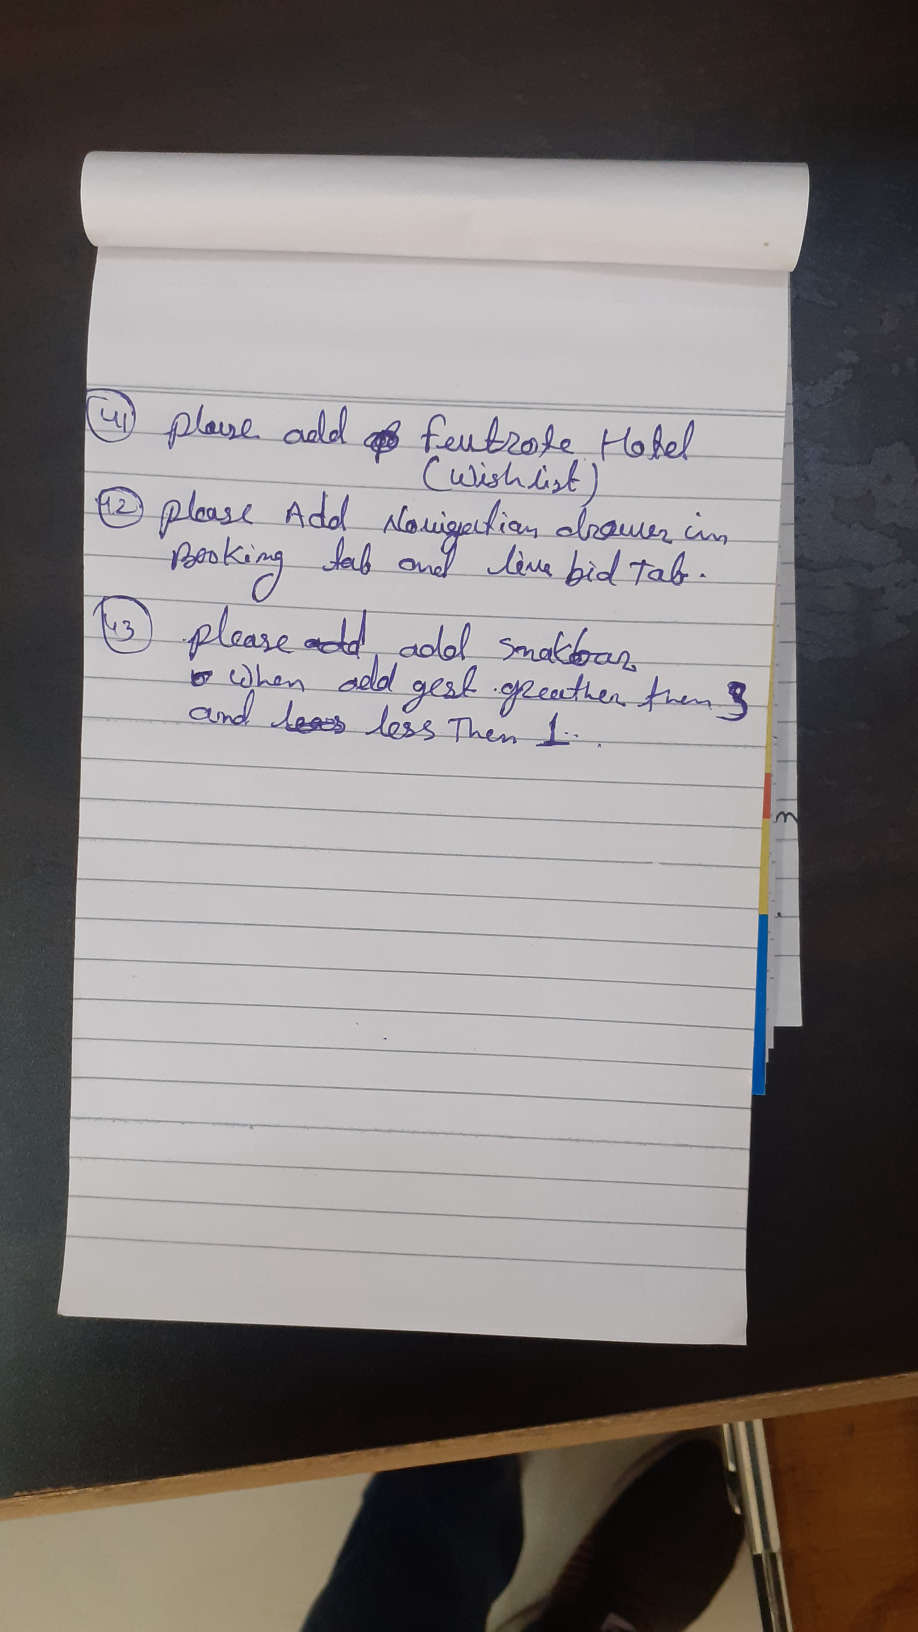 41 please add feutrote Hotel
(wishlist)
42 please Add Navigation drawer in
Booking tab and live bid Tab.
43 please add add snakbar,
when add gest greather then 9
and less less Then 1..